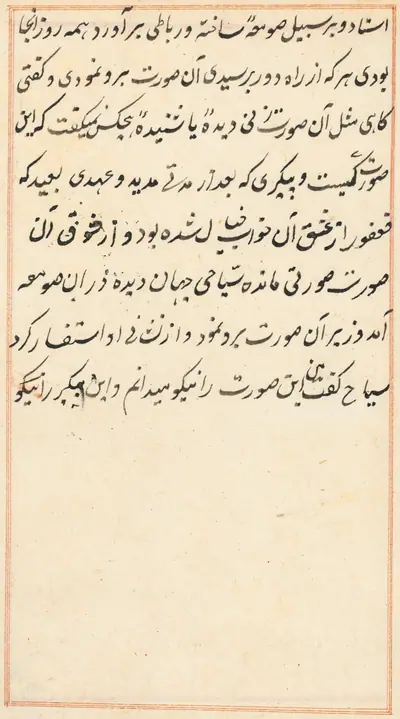 استاد و بر سبیل صومعهٔ ساخته و رباطی بر آورد همه روز آنجا
بودی هر که از راه دور برسیدی آن صورت برو نمودی و کفتی
کاهی مثل آن صورت زنی دیدهٔ یا شنیدهٔ هیچکس نمیکفت که این
صورت کیست و پیکری که بعد از مدتی مدید و عهدی بعید که
فغفور از عشق آن خواب خیال شده بود و از شوق آن
صورت صورتی مانده سیاحی جهان دیده در آن صومعه
آمد وزیر آن صورت برو نمود و از نشانی او استفسار کرد
سیاح کفت من این صورت را نیکو میدانم و این پیکر را نیکو